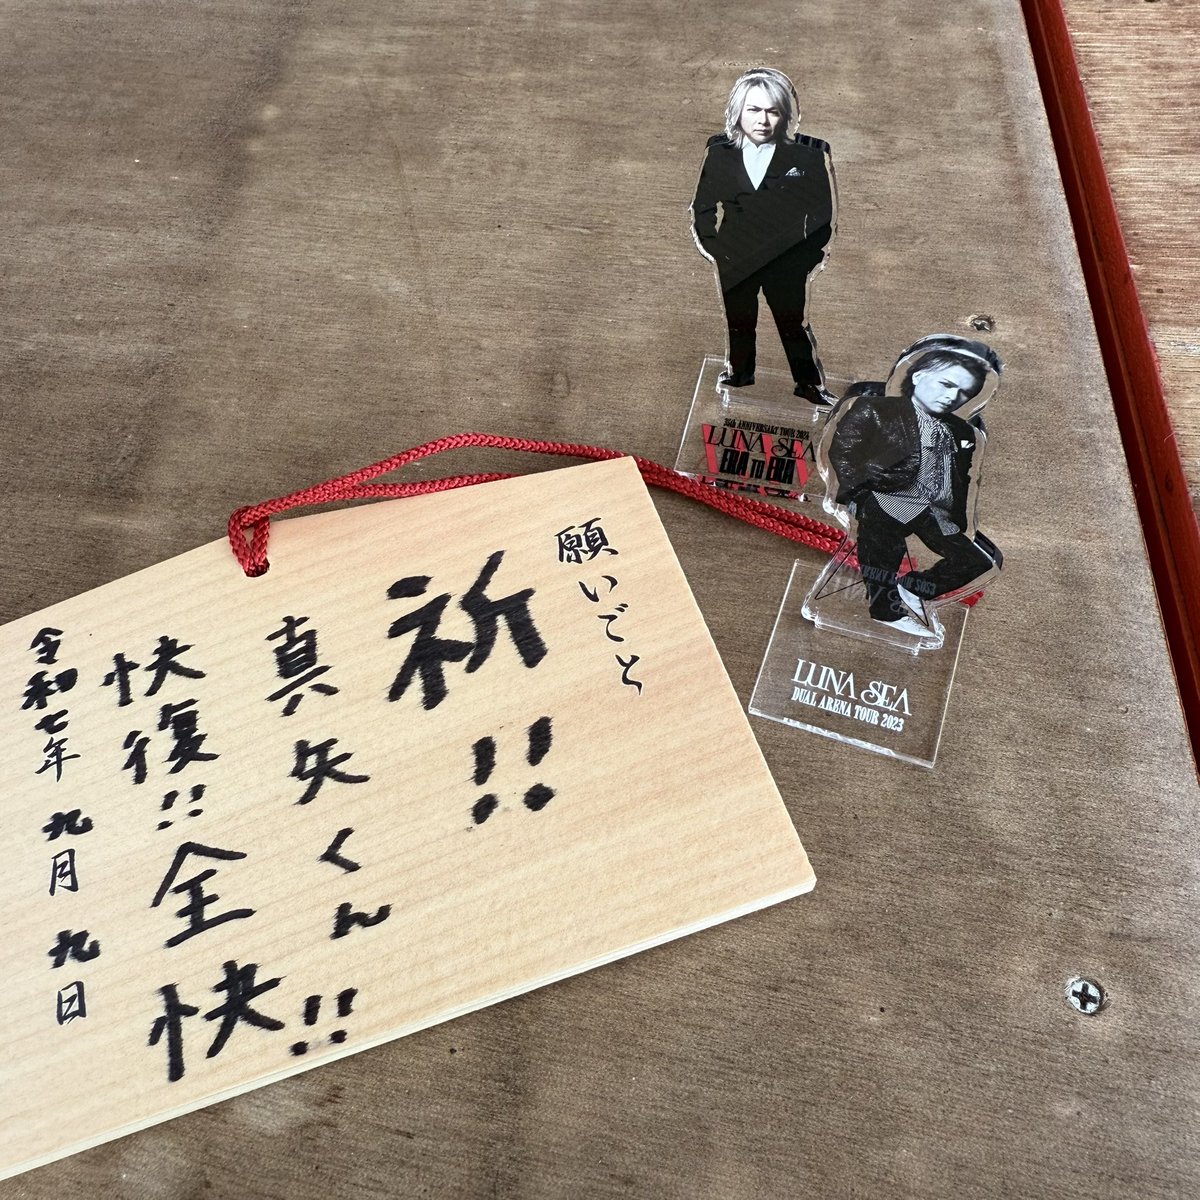 願いごと
祈!!
真矢くん!!
快復!!全快
令和七年 九月 九日
35th ANNIVERSARY TOUR 2024
LUNA SEA
ERA TO ERA
LUNA SEA
DUAL ARENA TOUR 2023